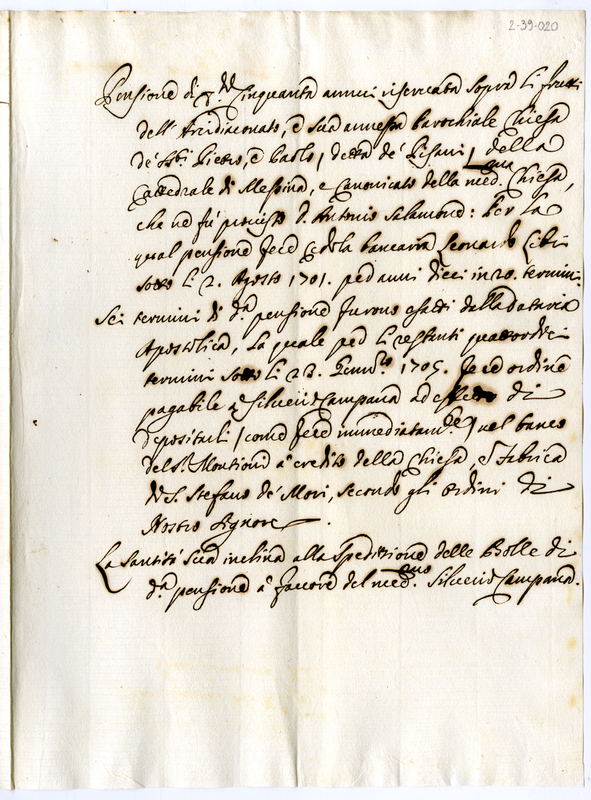 2-39-020
Pensione di ▽.di Cinquanta annui riservata sopra li frutti
dell' Arcidiaconato, e sua annessa Parochiale Chiesa
de' SS.ti Pietro, e Paolo, detta de' Pisani, della
Cattedrale di Messina, e Canonicato della med.ma Chiesa,
che ne fù provisto D. Antonio Salamone: Per la
qual pensione fece Cedola bancaria Leonardo Libri
sotto li 2. Agosto 1701. per anni dieci in 20. termini.
Sei termini di d.a pensione furono esatti dalla Dataria
Apostolica, la quale per li restanti quattordici
termini sotto li 23. Genn.ro 1705. fece ordine
pagabile a Silverio Campana ad effetto di
depositarli (come fece immediatam.te) nel banco
del S.r Montioni à credito della Chiesa, e Fabrica
di S. Stefano de' Mori, secondo gli ordini di
Nostro Signore.
La Santità Sua inclina alla Speditione delle Bolle di
d.a pensione à favore del med.mo Silverio Campana.